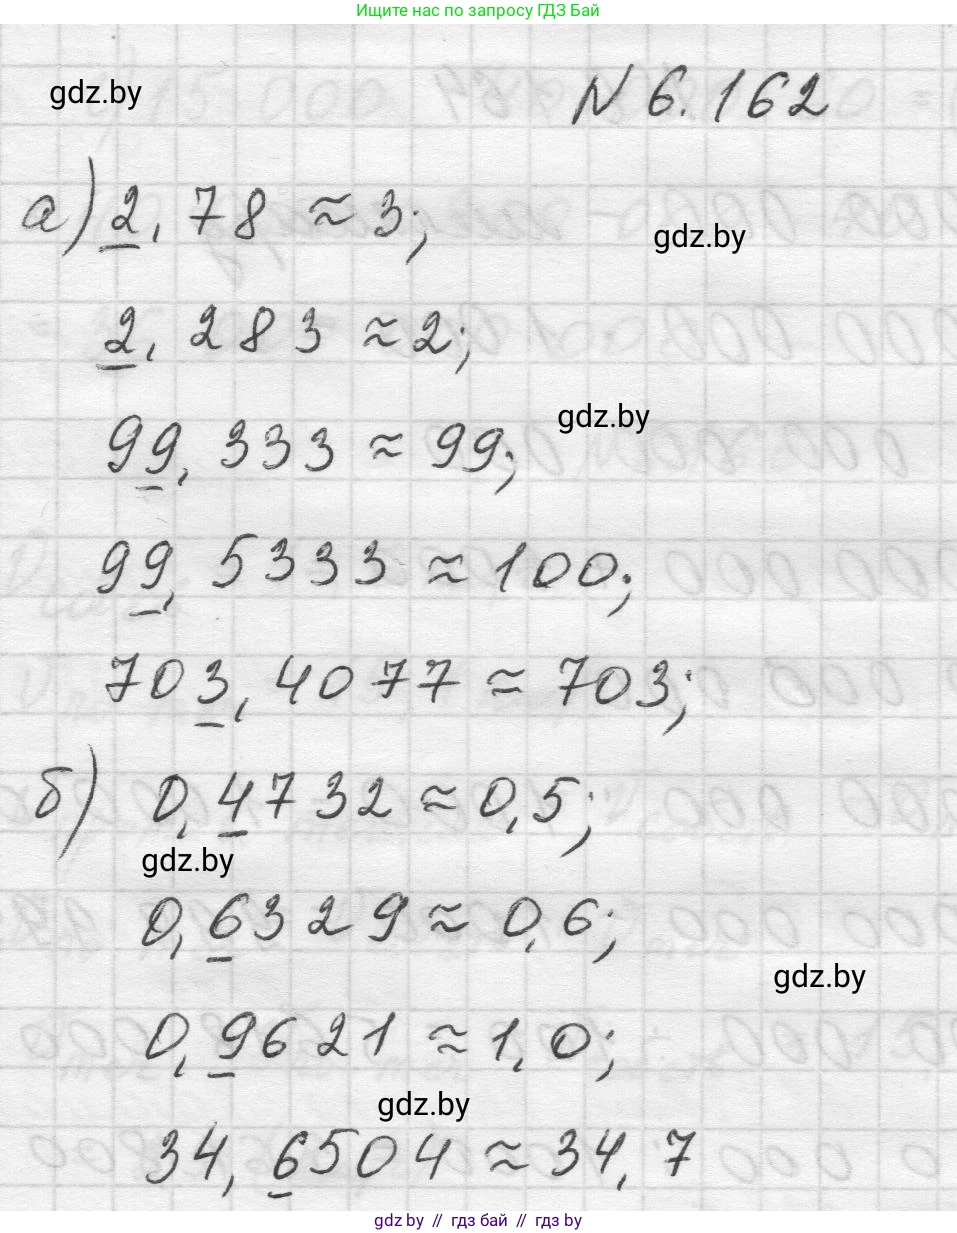 Ищите нас по запросу ГДЗ Бай
gdz.by
N 6.162
а) 2,78 ≈ 3;
gdz.by
2,283 ≈ 2;
gdz.by
99,333 ≈ 99;
99,5333 ≈ 100;
703,4077 ≈ 703;
б) 0,4732 ≈ 0,5;
gdz.by
0,6329 ≈ 0,6;
gdz.by
0,9621 ≈ 1,0;
gdz.by
34,6504 ≈ 34,7
gdz.by // гдз бай // гдз by